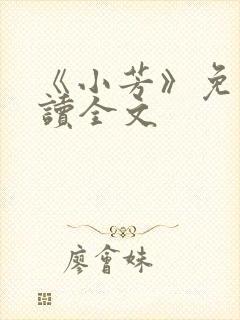 《小芳》免
讀全文
廖會妹